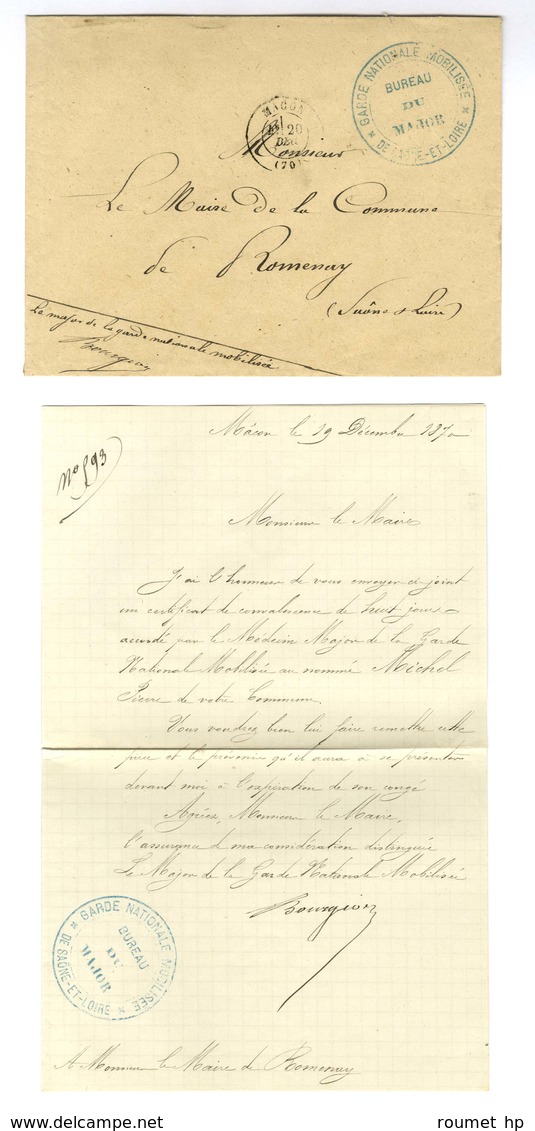 GARDE NATIONALE MOBILISÉE
DE SAÔNE-ET-LOIRE
BUREAU
DU
MAJOR
MACON
20
DEC
(70)
Monsieur
Le Maire de la Commune
de Romenay
(Saône & Loire)
Le major de la garde nationale mobilisée
Mâcon le 19 Décembre 1870
N° 593
Monsieur le Maire
J'ai l'honneur de vous envoyer ci-joint
un certificat de convalescence de huit jours
accordé par le Médecin Major de la Garde
Nationale Mobilisée au nommé Michel
Pierre de votre Commune.
Vous voudrez bien lui faire remettre cette
pièce et le prévenir qu'il aura à se présenter
devant moi à l'expiration de son congé
Agréez, Monsieur le Maire,
l'assurance de ma considération distinguée
Le Major de la Garde Nationale Mobilisée
GARDE NATIONALE MOBILISÉE
DE SAÔNE-ET-LOIRE
BUREAU
DU
MAJOR
A Monsieur le Maire de Romenay
roumet hp